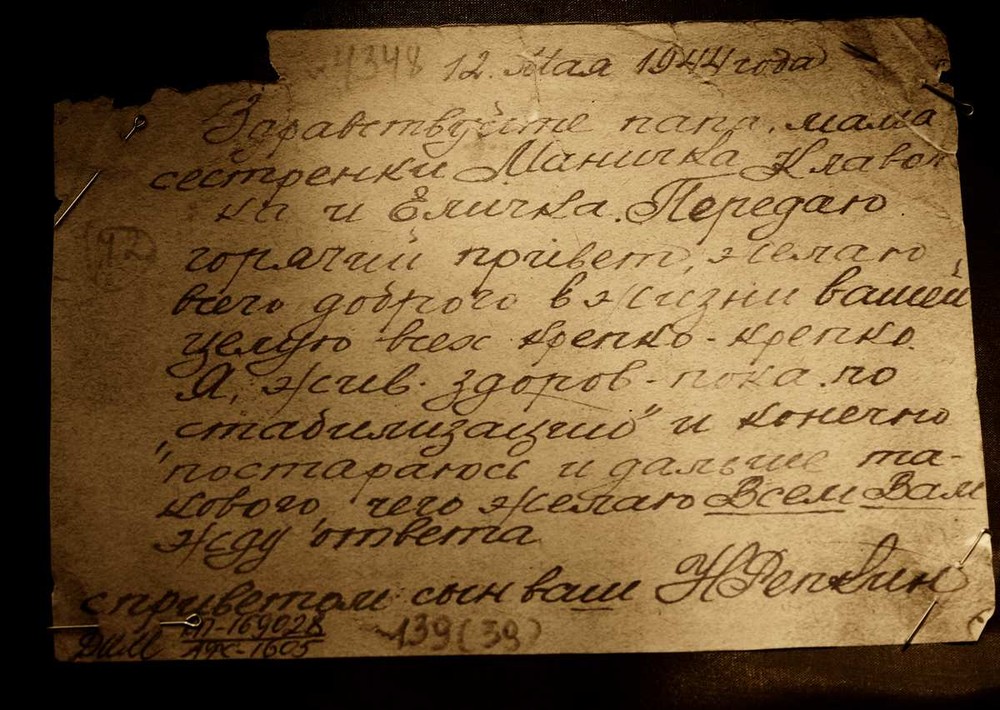 4348 12. Мая 1944 года
Здравствуйте папа, мама
сестренки Маничка Клавоч
ка и Еличка. Передаю
(42) горячий привет, желаю
всего доброго в жизни вашей
целую всех крепко-крепко.
Я, жив. здоров-пока по
„стабилизации" и конечно
постараюсь и дальше та-
кового чего желаю Всем Вам
жду ответа
с приветом сын ваш Н Репкин
КП-169028
АФС-1605
139(39)